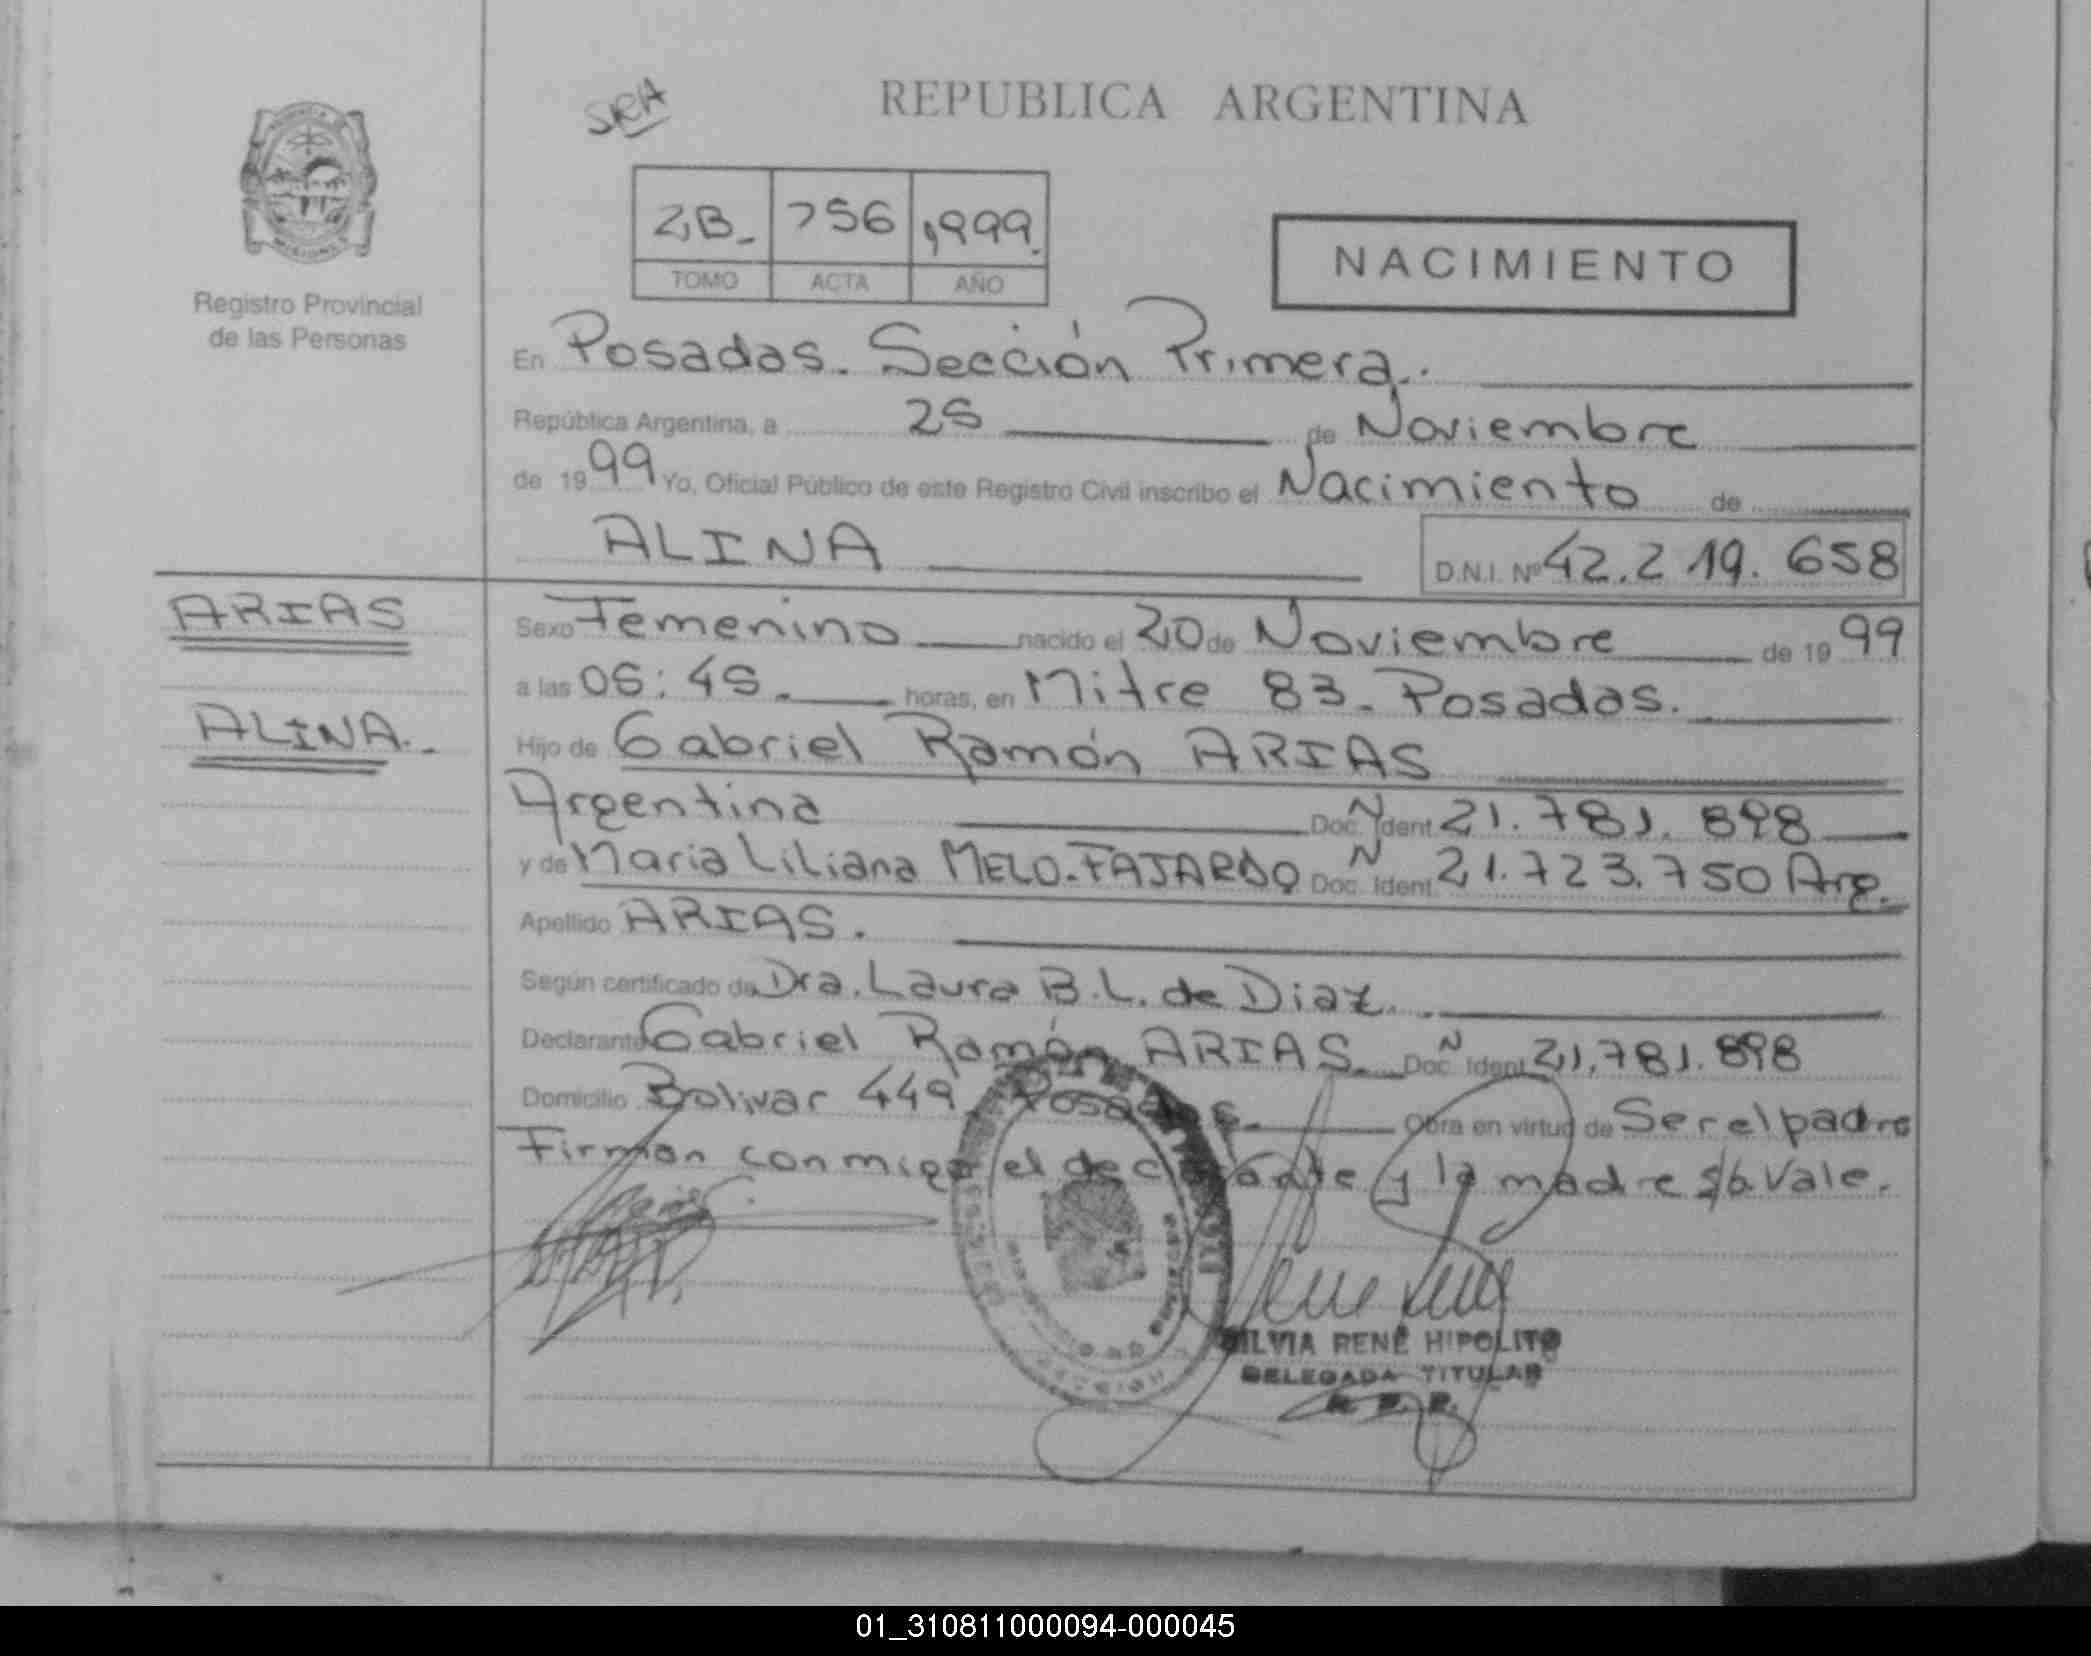 SRA
REPUBLICA ARGENTINA
2B- 756 1999.
TOMO ACTA AÑO
NACIMIENTO
Registro Provincial
de las Personas
En Posadas. Sección Primera.
República Argentina, a 25 de Noviembre
de 1999 Yo, Oficial Público de este Registro Civil inscribo el Nacimiento de
ALINA D.N.I. Nº 42.219.658
ARIAS
ALINA.-
Sexo Femenino nacido el 20 de Noviembre de 1999
a las 05:45. horas, en Mitre 83. Posadas.
Hijo de Gabriel Ramón ARIAS
Argentina Doc. Ident N 21.781.898
y de Maria Liliana MELO-FAJARDO Doc. Ident. N 21.723.750 Arg.
Apellido ARIAS.
Según certificado de Dra. Laura B.L. de Diaz.
Declarante Gabriel Ramón ARIAS. Doc. Ident N 21.781.898
Domicilio Bolivar 449 Posadas. Obra en virtud de Ser el padre
Firman conmigo el declarante y la madre s/b Vale.
SILVIA RENÉ HIPOLITO
DELEGADA TITULAR
R. P. P.
01_310811000094-000045